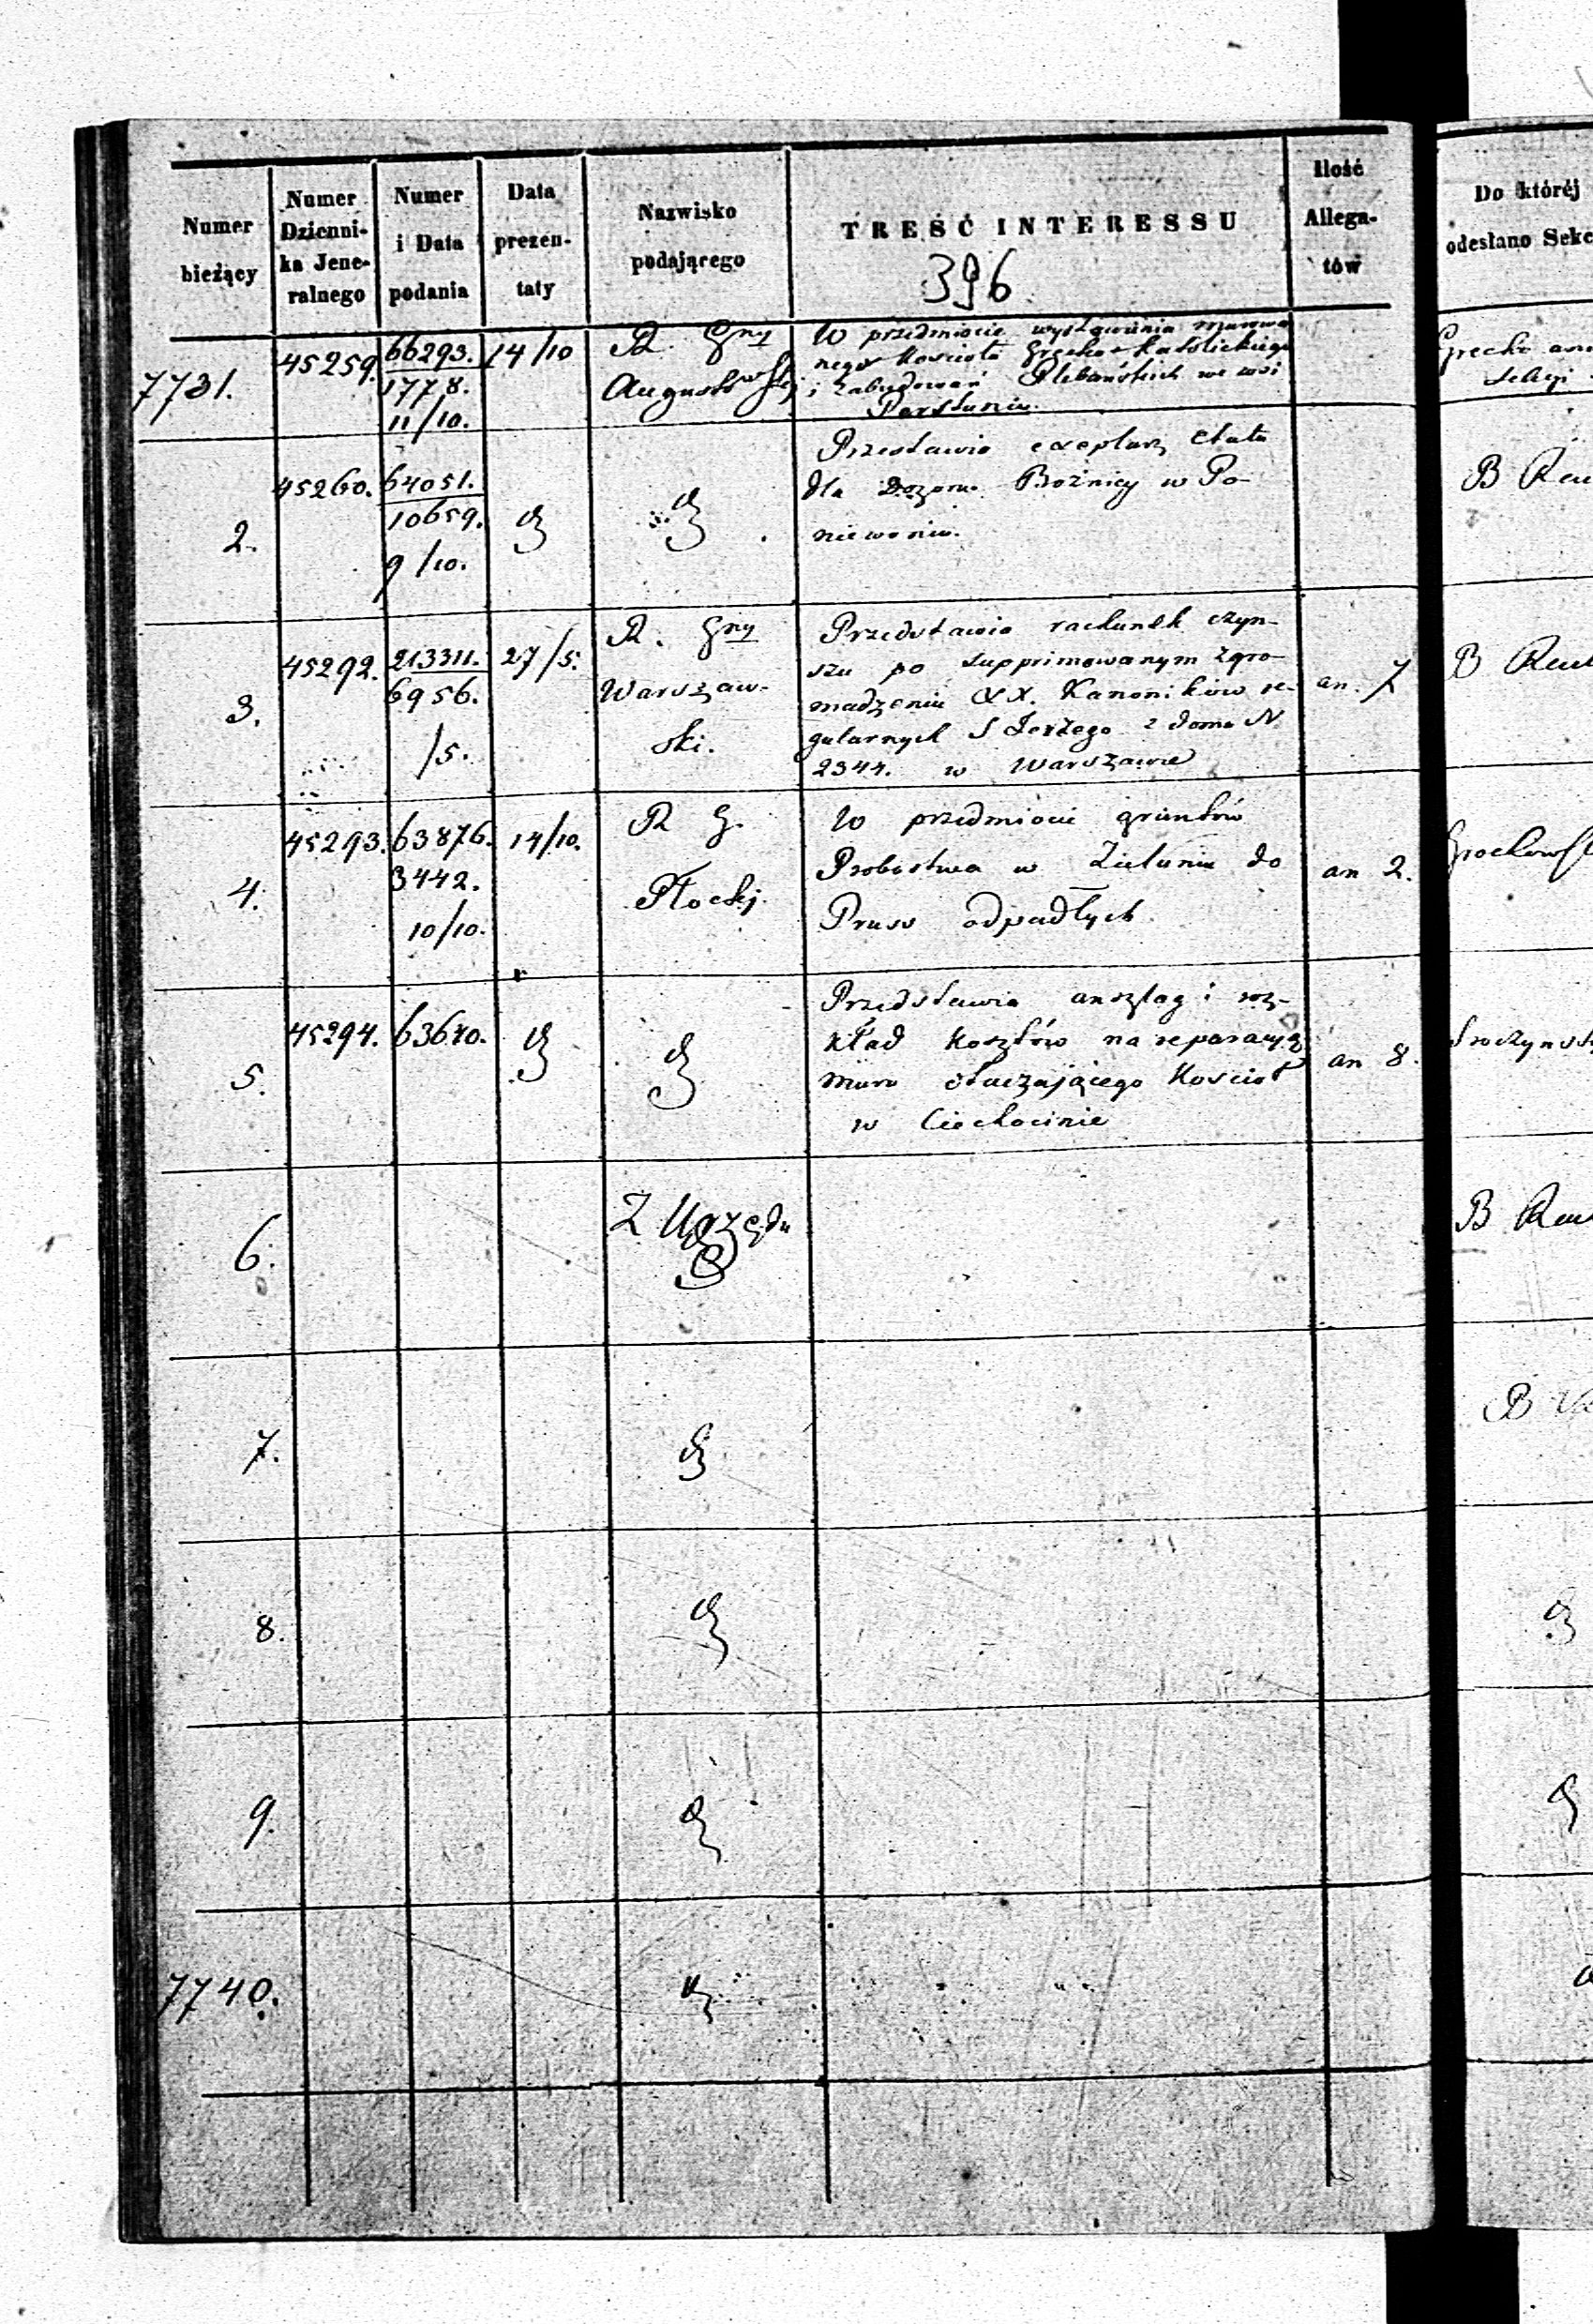 Numer bieżący
Numer Dzienni-
ka Jene-
ralnego
Numer
i Data
podania
Data
prezen-
taty
Nazwisko
podającego
TREŚĆ INTERESSU
396
Ilość
Allega-
tów
Do któréj
odesłano Sekc
7731.
45259.
66293.
1778.
11/10.
14/10
R. Gny
Augustowskiej
W przedmiocie wystawienia murowa
nego Kościoła Grecko-Katolickiego
i zabudowań Plebańskich we wsi
Grecko
2.
45260.
64051.
10659.
9/10.
Przestawia exeplarz etatu
dla Dozoru Bożnicy w Po-
niewoniu.
B
3.
45292.
213311.
6956.
/5.
27/5.
R. Gny
Warszaw-
ski.
Przedstawia rachunek czyn-
szu po supprimowanym zgro-
madzeniu XX. Kanoników re-
gularnych S Jerzego z domu N
2344. w Warszawie
an. 7
B
4.
45293.
63876.
3442.
10/10.
14/10.
R G.
Płockiej
W przedmiocie gruntów
Probostwa w Zieluniu do
Pruss odpadłych
an 2.
5.
45294.
63640.
Przedstawia anszlag i roz-
kład kosztów na reparacyą
muru otaczającego Kościoł
w Ciechocinie
an 8.
6.
Z Urzędu
B
7.
B
8.
9.
7740.